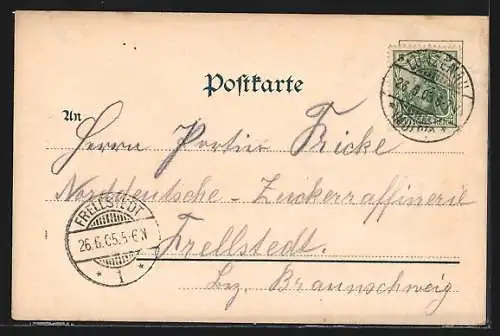 Postkarte
An
Herrn Portier Fricke
Norddeutsche-Zuckerraffinerie
Frellstedt.
bez. Braunschweig
FRELLSTEDT
26.6.05.5-6N
* 1 *
26.6.05